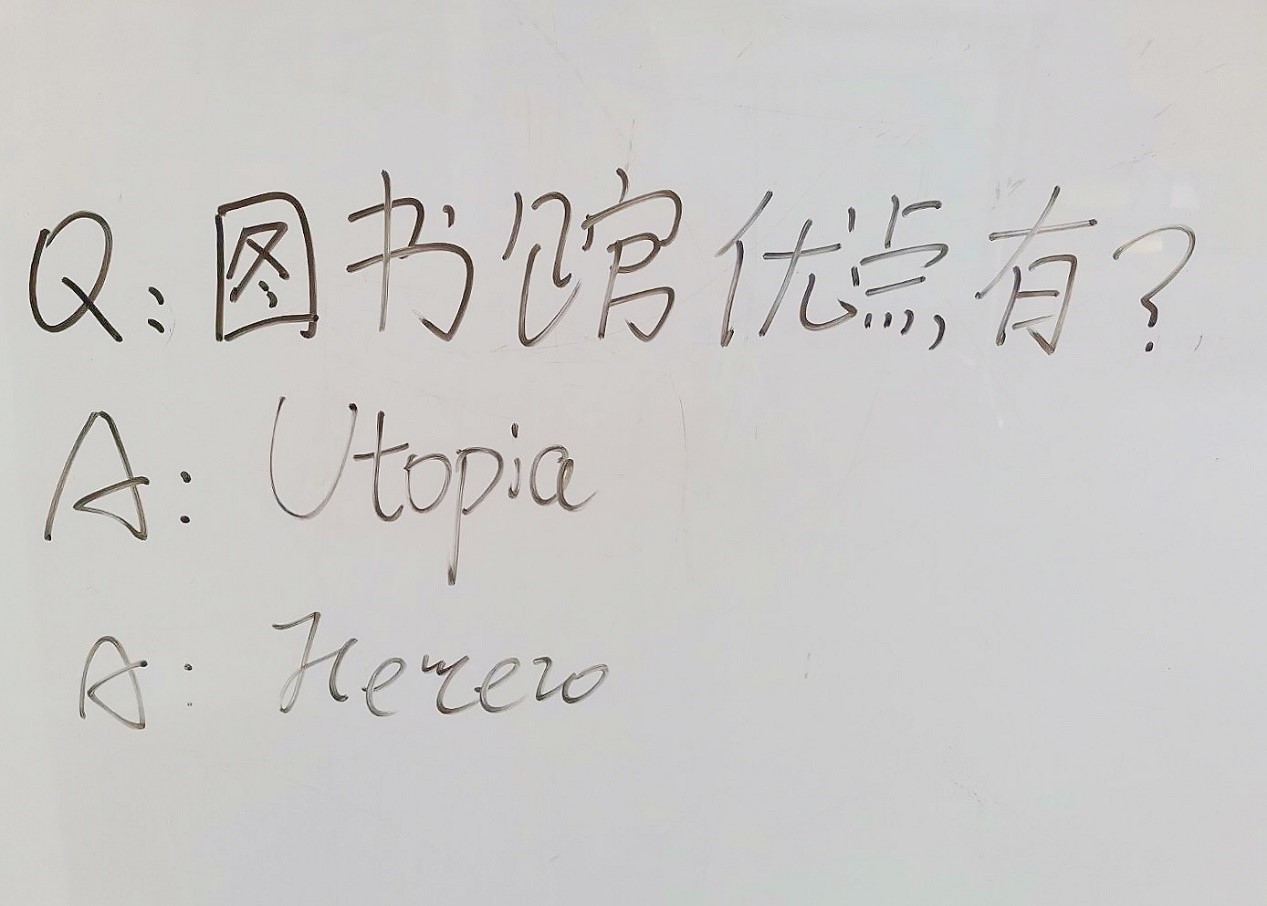 Q: 图书馆优点有?
A: Utopia
A: Herero